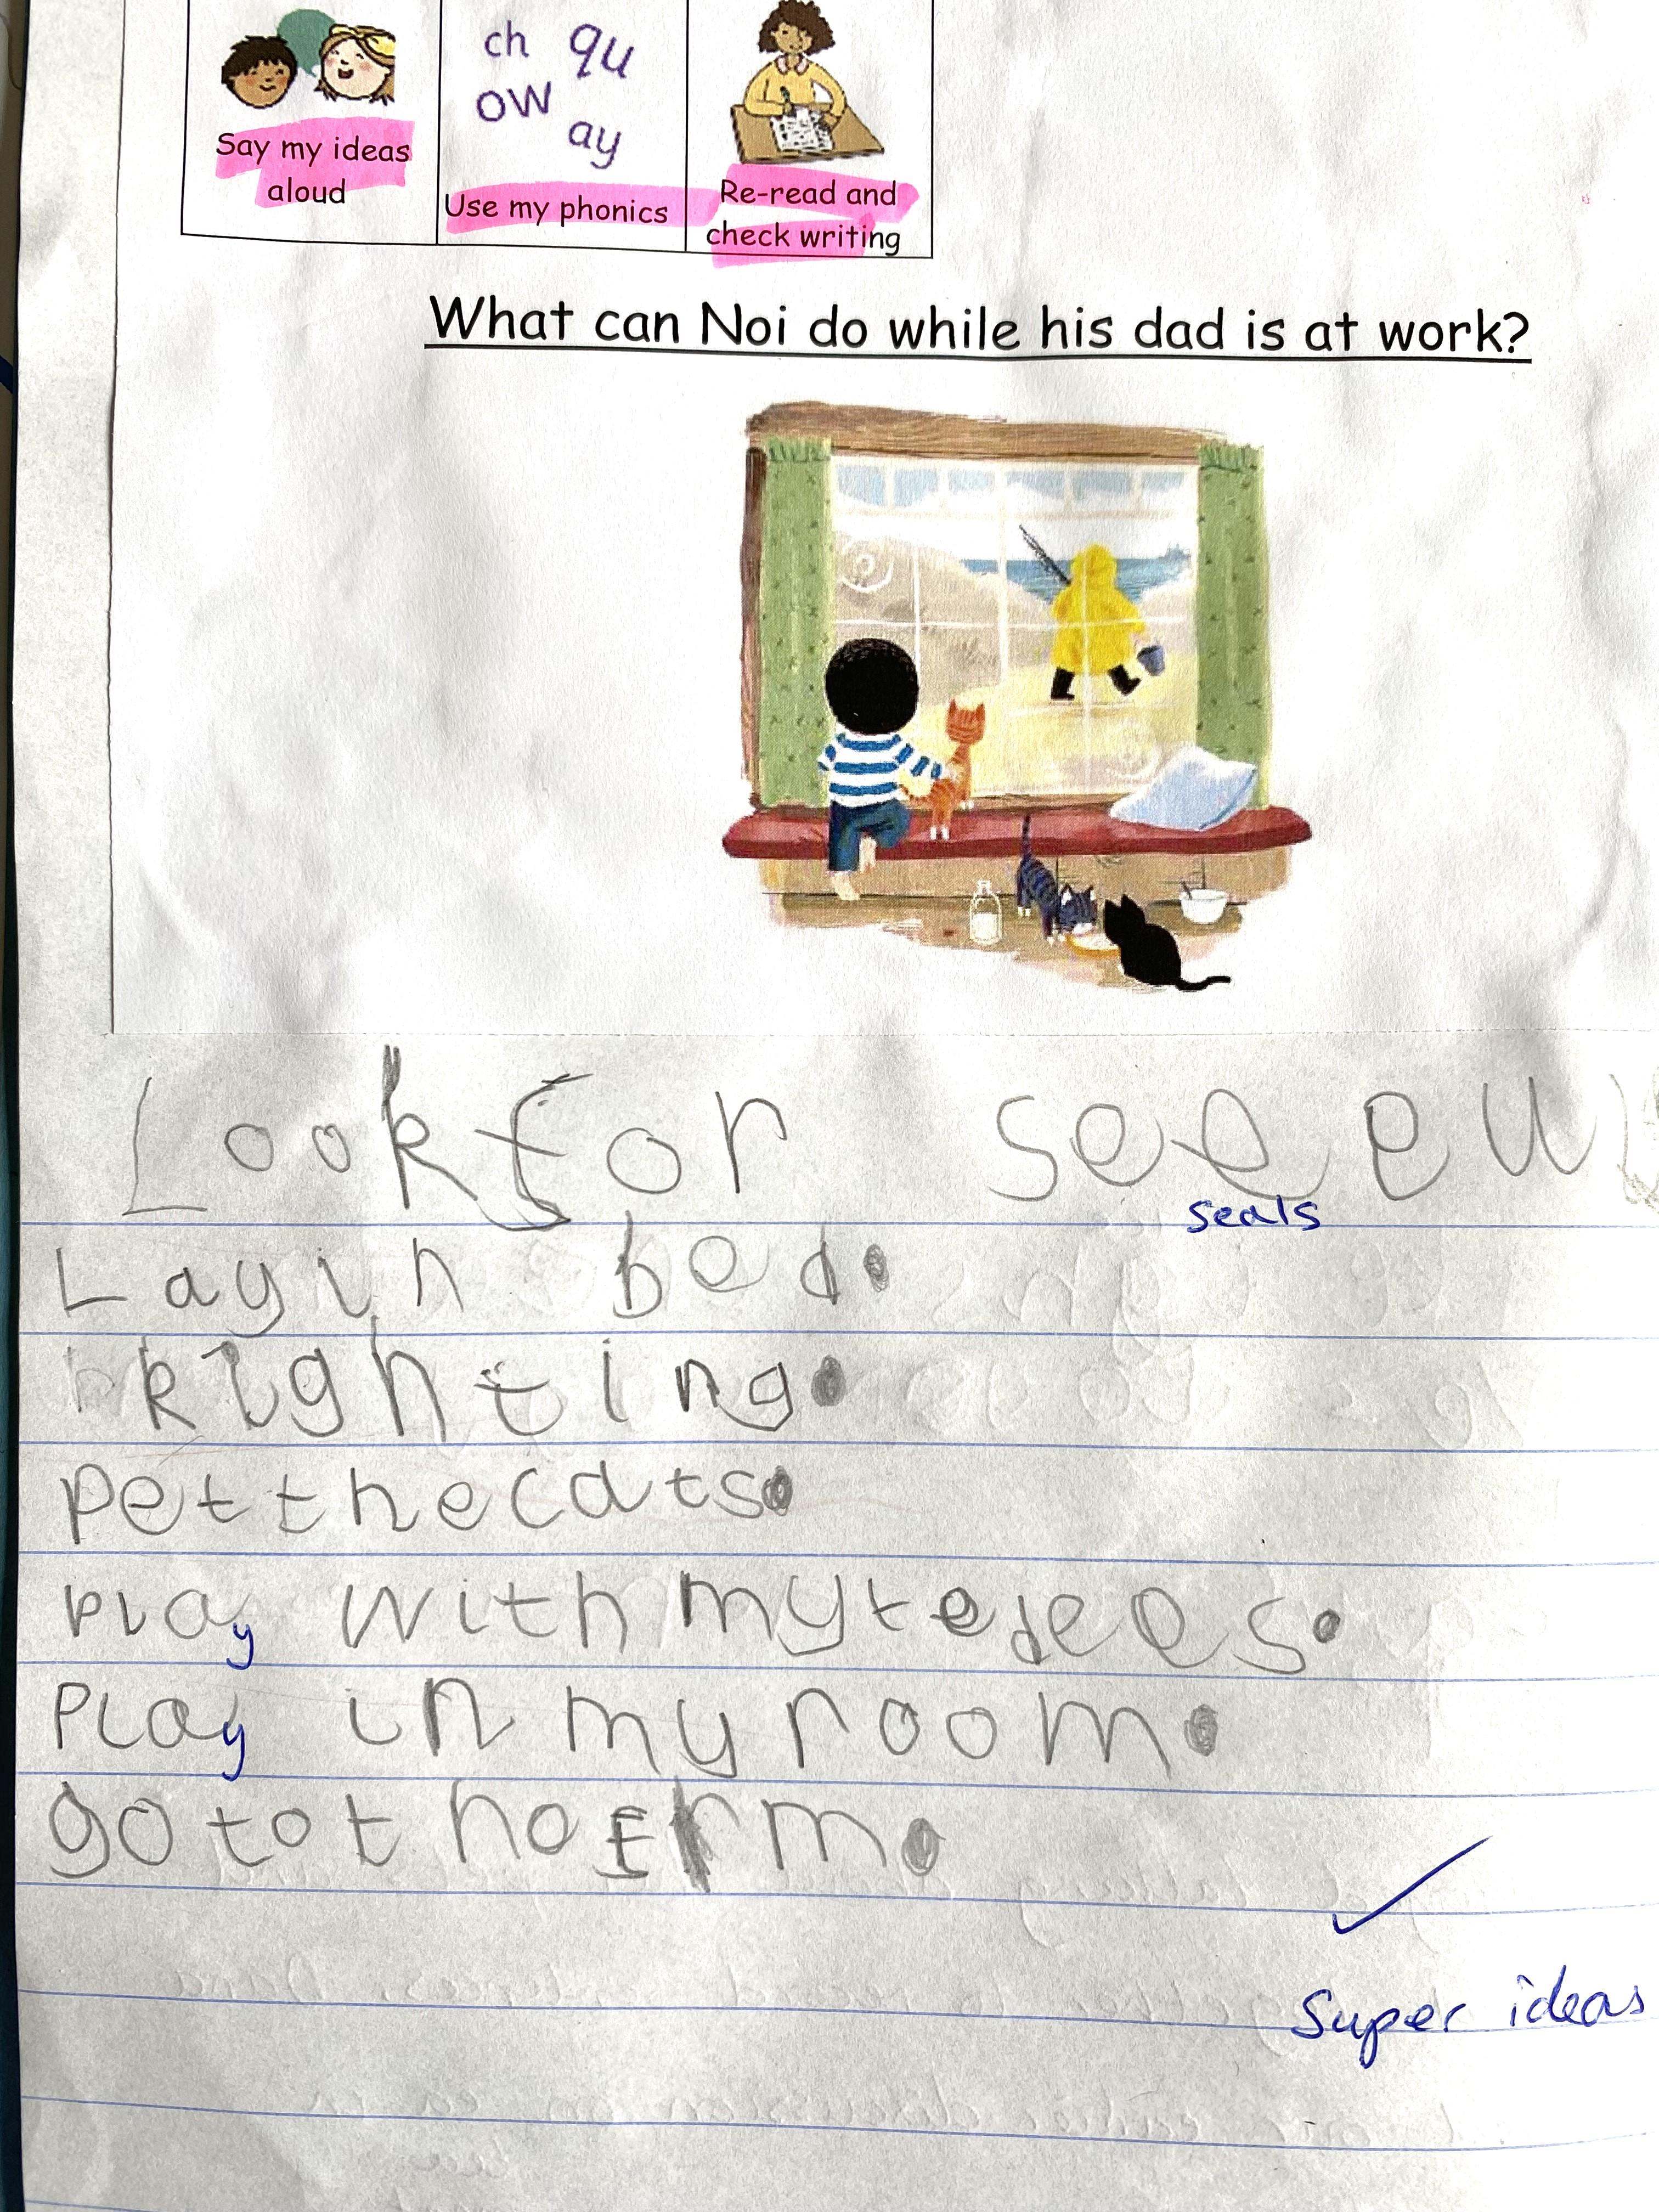 ch qu
ow ay
Say my ideas
aloud
Use my phonics
Re-read and
check writing
What can Noi do while his dad is at work?
Look for seeeu
seals
Lay in bed.
Righting.
Pet the cats.
Play with my tedees.
Play in my room.
go to t
Super ideas